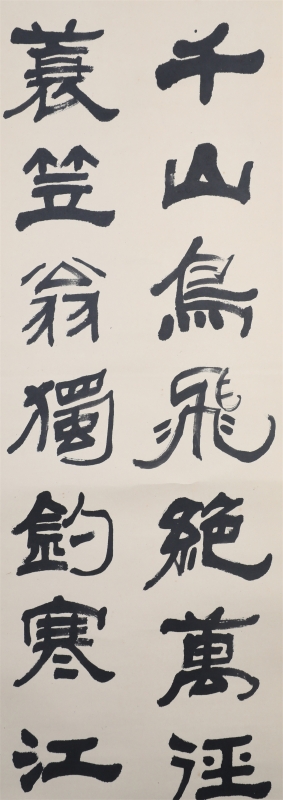 千山鳥飛絶萬徑
蓑笠翁獨釣寒江